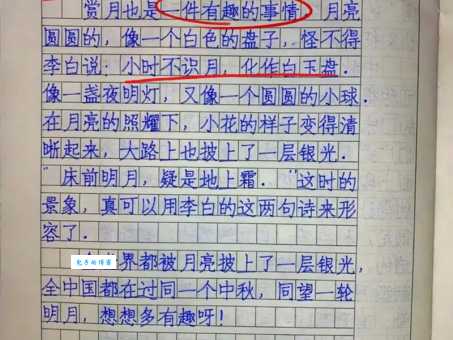 赏月也是一件有趣的事情 月亮
圆圆的，像一个白色的盘子，怪不得
李白说：小时不识月，化作白玉盘．
像一盏夜明灯，又像一个圆圆的小球．
在月亮的照耀下，小花的样子变得清
晰起来，大路上也披上了一层银光．
"床前明月，疑是地上霜．"这时的
景象，真可以用李白的这两句诗来形
容了．
界都被月亮披上了一层银光，
全中国都在过同一个中秋，同望一轮
明月，想想多有趣呀！